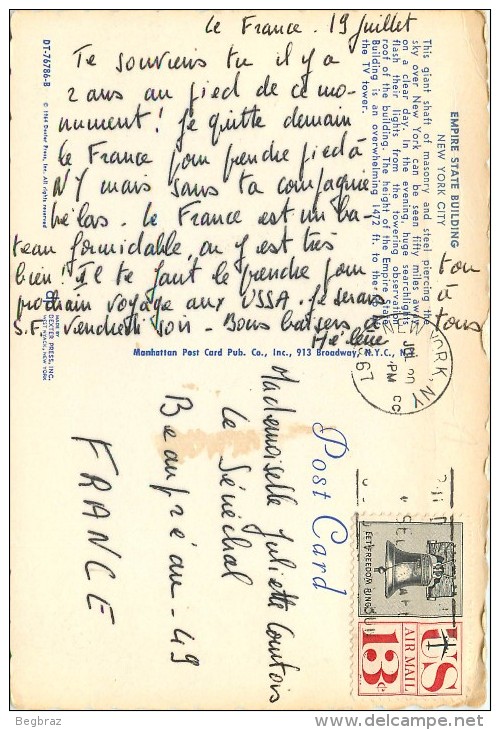 Le France. 19 Juillet
Te souviens tu il y a
2 ans au pied de ce mo-
nument! Je quitte demain
le France pour prendre pied à
NY mais sans ta compagnie
hélas. Le France est un ba-
teau formidable, on y est très
bien! Il te faut le prendre pour ton
prochain voyage aux USSA. Je serais à
S.F. vendredi soir - Bons baisers à tous
Hélène
EMPIRE STATE BUILDING
NEW YORK CITY
This giant shaft of masonry and steel piercing the
sky over New York can be seen fifty miles away
on a clear day. In the evening, huge searchlights
flash their lights from the towering observation
roof of the building. The height of the Empire State
Building is an overwhelming 1472 ft. to the top of
the TV tower.
DT-76786-B
© 1964 Dexter Press, Inc. All rights reserved
MADE BY
DEXTER PRESS, INC.
WEST NYACK, NEW YORK
Manhattan Post Card Pub. Co., Inc., 913 Broadway, N.Y.C., N.Y.
Post Card
Mademoiselle Juliette
Le Sénéchal
Beaupréau - 49
FRANCE
YORK, NY
PM
LET FREEDOM RING
US
AIR MAIL
13¢
Begbraz
delcampe.net